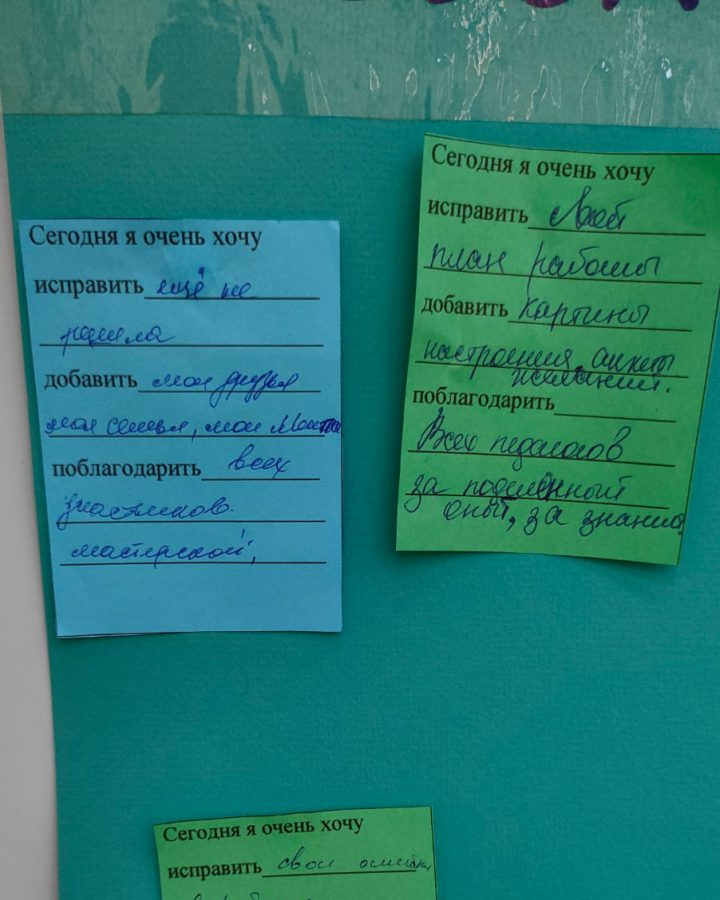 Сегодня я очень хочу
исправить ещё не
решила
добавить мои друзья
моя семья, мои
поблагодарить всех
участников
мастерской,
Сегодня я очень хочу
исправить свой
план работы
добавить картины
настроения, анкеты
желаний.
поблагодарить
Всех педагогов
за поделённый
опыт, за знания.
Сегодня я очень хочу
исправить свои ошибки,